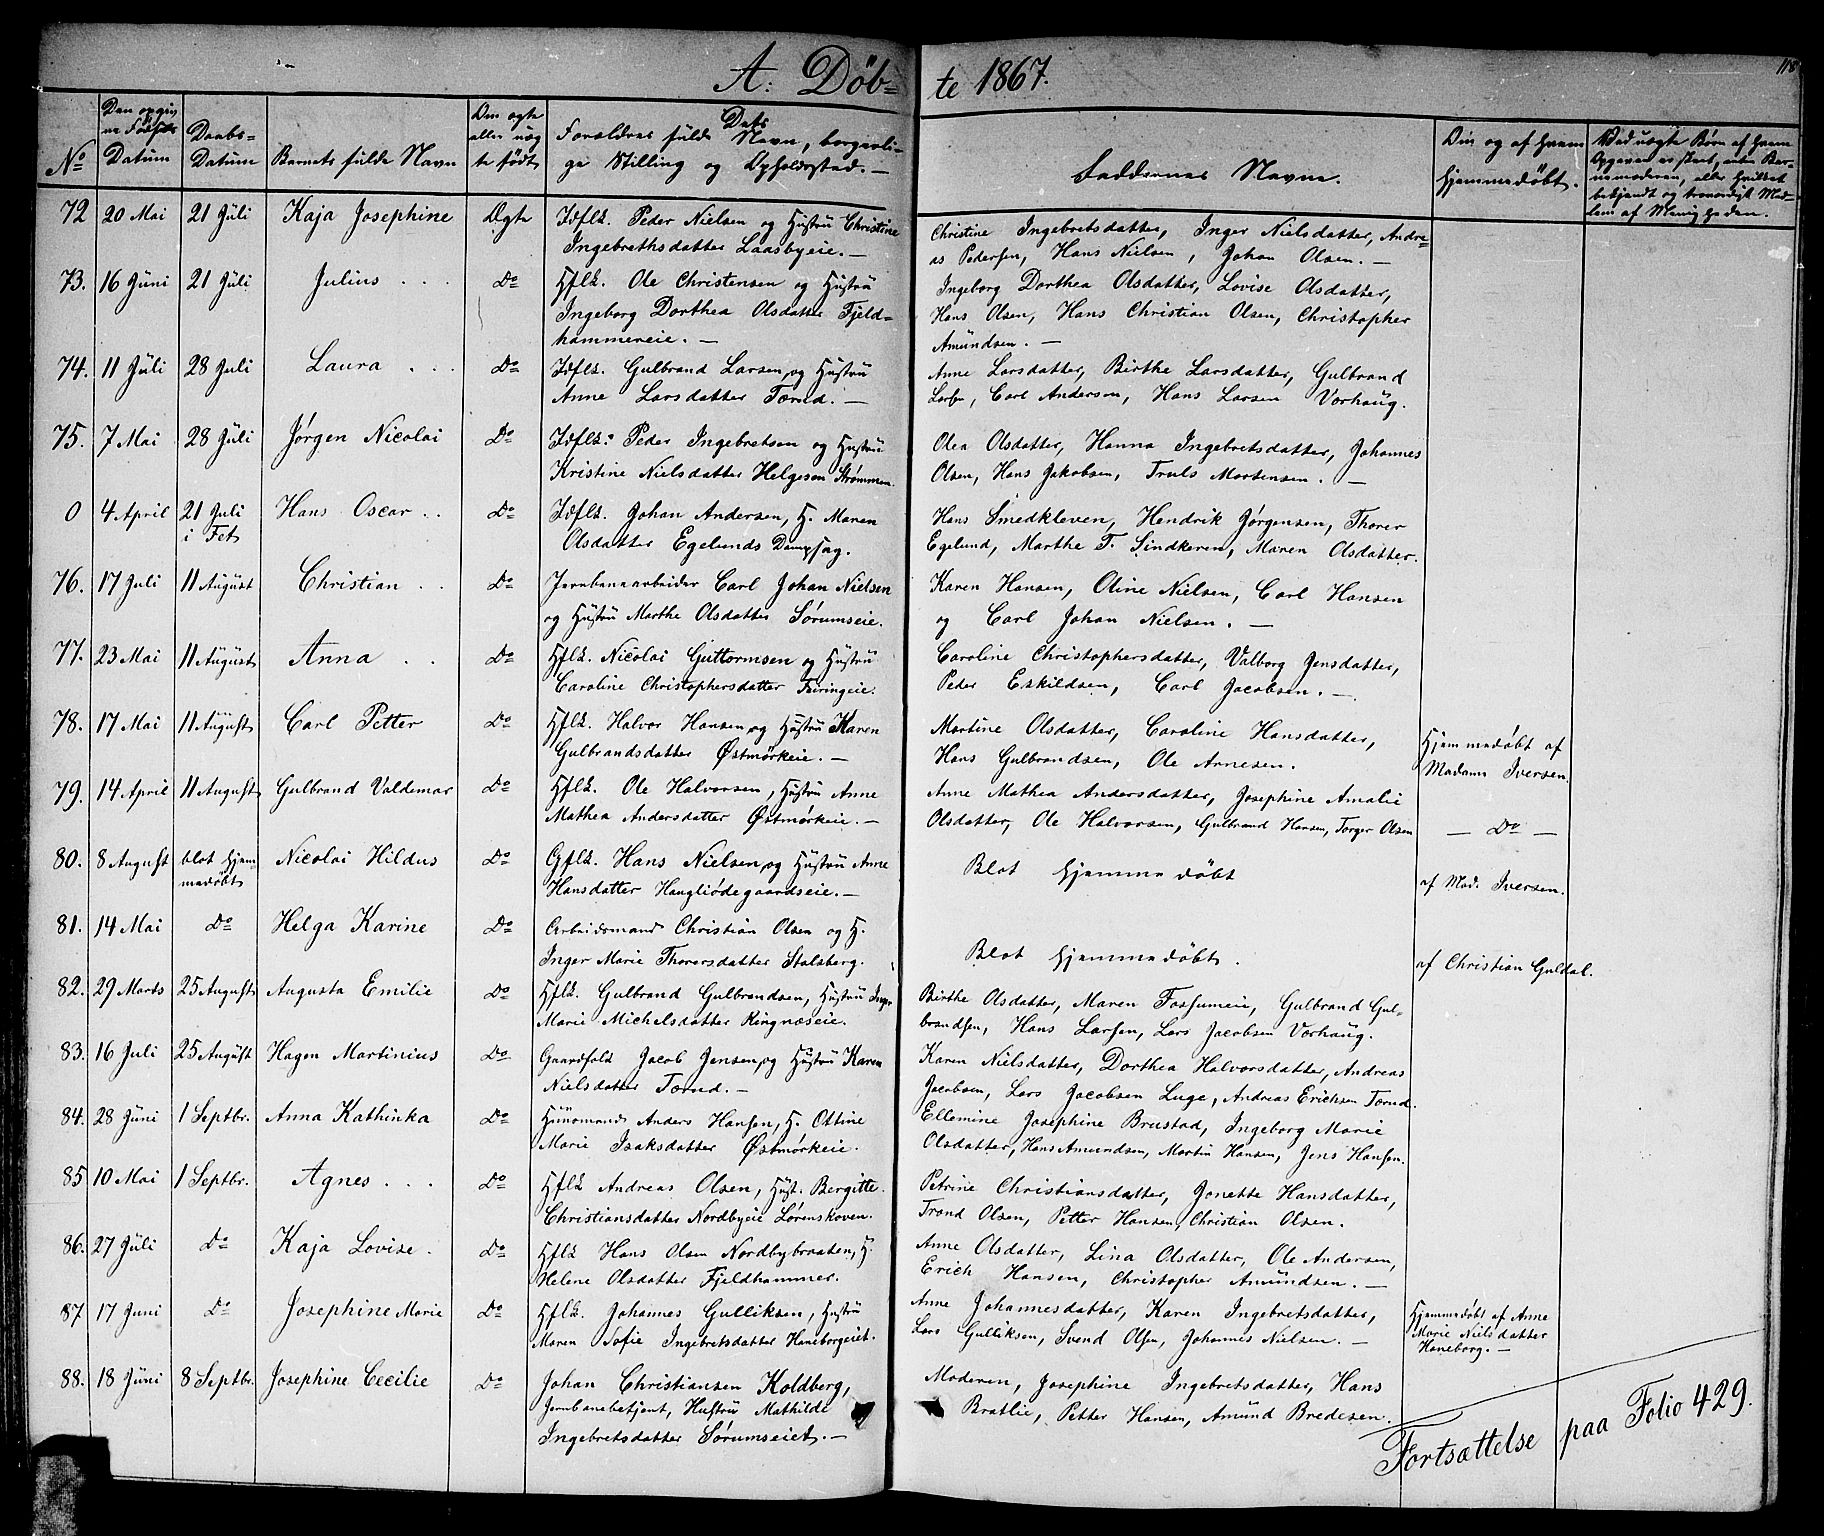 118
A. Døb= te 1867.
No
Den opgivne Fødsels Datum
Daabs= Datum
Barnets fulde Navn
Om ægte eller uægte født
Forældres fulde Dato Navn, borgerlige Stilling og Opholdssted. —
Faddernes Navne.
Om og af hvem hjemmedøbt.
72 20 Mai 21 Juli Kaja Josephine Ægte Idflk. Peder Nielsen og Hustru Christine
Ingebrethsdatter Laasbyeie. —
Christine Ingebretsdatter, Inger Nielsdatter, Andre=
as Pedersen, Hans Nielsen, Johan Olsen. —
73. 16 Juni 21 Juli Julius . . . Do Hflk. Ole Christensen og Hustru
Ingeborg Dorthea Olsdatter Fjeld=
hammereie. —
Ingeborg Dorthea Olsdatter, Lovise Olsdatter,
Hans Olsen, Hans Christian Olsen, Christopher
Amundsen. —
74. 11 Juli 28 Juli Laura . . . Do Idflk. Gulbrand Larsen, og Hustru
Anne Larsdatter Tærud. —
Anne Larsdatter, Birthe Larsdatter, Gulbrand
Larsen, Carl Andersen, Hans Larsen Vorhaug.
75. 7 Mai 28 Juli Jørgen Nicolai Do Idflk: Peder Ingebretsen og Hustru
Kristine Nielsdatter Helgesen Strømmen.
Olea Olsdatter, Hanna Ingebretsdatter, Johannes
Olsen, Hans Jakobsen, Truls Mortensen. —
0 4 April 21 Juli Hans Oscar . . Do Idflk. Johan Andersen, H. Maren
i Fet
Olsdatter Egelunds Dampsag.
Hans Smedkleven, Hendrik Jørgensen, Thorer
Egelund, Marthe T. Sindkeren, Maren Olsdatter.
76. 17 Juli 11 August Christian . . Do Jernbanearbeider Carl Johan Nielsen
og Hustru Marthe Olsdatter Sørumseie.
Karen Hansen, Oline Nielsen, Carl Hansen
og Carl Johan Nielsen. —
77. 23 Mai 11 August Anna . . Do Hflk. Nicolai Guttormsen og Hustru
Caroline Christophersdatter Faringeie.
Caroline Christophersdatter, Valborg Jensdatter,
Peder Eskildsen, Carl Jacobsen. —
78. 17 Mai 11 August Carl Petter Do Hflk. Halvor Hansen, og Hustru Karen
Gulbrandsdatter Østmørkeie. —
Martine Olsdatter, Caroline Hansdatter,
Hans Gulbrandsen, Ole Arnesen.
Hjemmedøbt af
Madame Iversen.
79. 14 April 11 August Gulbrand Valdemar Do Hflk. Ole Halvorsen, Hustru Anne
Mathea Andersdatter Østmørkeie. —
Anne Mathea Andersdatter, Josephine Amalie
Olsdatter, Ole Halvorsen, Gulbrand Hansen, Torger Olsen
— Do —
80. 8 August blot hjem= Nicolai Hildus Do Gflk. Hans Nielsen, og Hustru Anne
medøbt
Hansdatter Haugliødegaardseie. —
Blot hjemmedøbt
af Mad. Iversen.
81. 14 Mai Do Helga Karine Do Arbeidsmand Christian Olsen og H.
Inger Marie Thorersdatter Stalsberg.
Blot hjemmedøbt.
af Christian Guldal.
82. 29 Marts 25 August Augusta Emilie Do Hflk. Gulbrand Gulbrandsen, Hustru Inger
Marie Michelsdatter Ringnæseie.
Birthe Olsdatter, Maren Fossumeie, Gulbrand Gul=
brandsen, Hans Larsen, Lars Jacobsen Vorhaug.
83. 16 Juli 25 August Hagen Martinius Do Gaardfolk Jacob Jensen, og Hustru Karen
Nielsdatter Tærud. —
Karen Nielsdatter, Dorthea Halvorsdatter, Andreas
Jacobsen, Lars Jacobsen Luge, Andreas Erichsen Tærud.
84. 28 Juni 1 Septbr. Anna Kathinka Do Huusmand Anders Hansen, H. Ottine
Marie Isaksdatter Østmørkeie.
Ellemine Josephine Brustad, Ingeborg Marie
Olsdatter, Hans Amundsen, Martin Hansen, Jens Hansen.
85 10 Mai 1 Septbr. Agnes . . . Do Hflk Andreas Olsen, Hust. Bergitte
Christiansdatter Nordbyeie Lørenskoven.
Petrine Christiansdatter, Jonette Hansdatter,
Trond Olsen, Petter Hansen, Christian Olsen.
86. 27 Juli Do Kaja Lovise. Do Hflk Hans Olsen Nordbybraaten, H.
Helene Olsdatter Fjeldhammer.
Anne Olsdatter, Lina Olsdatter, Ole Andersen,
Erich Hansen, Christopher Amundsen. —
87. 17 Juni Do Josephine Marie Do Hflk. Johannes Gulliksen, Hustru
Maren Sofie Ingebretsdatter Haneborgeiet.
Anne Johannesdatter, Karen Ingebretsdatter,
Lars Gulliksen, Svend Olsen, Johannes Nielsen. —
Hjemmedøbt af Anne
Marie Nielsdatter
Haneborg. —
88. 18 Juni 8 Septbr. Josephine Cecilie Do Johan Christiansen Koldberg,
Jernbanebetjent, Hustru Mathilde
Ingebretsdatter Sørumseiet. —
Moderen, Josephine Ingebretsdatter, Hans
Bratlie, Petter Hansen, Amund Bredesen.
Fortsættelse paa Folio 429.